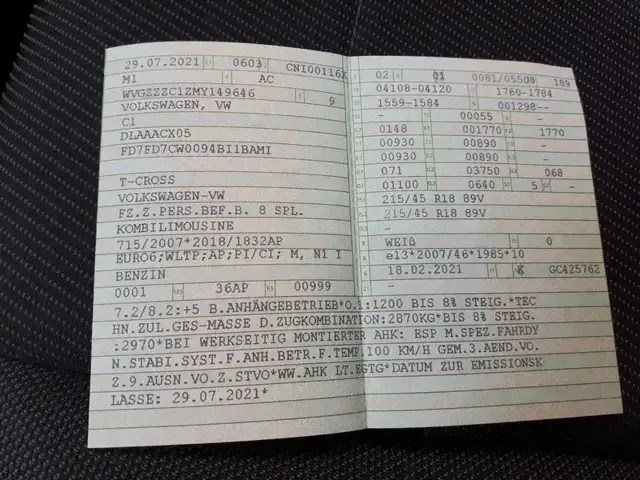 29.07.2021 0603 CNI00116X
M1 AC
WVGZZZC1ZMY149646 9
VOLKSWAGEN, VW
C1
DLAAACX05
FD7FD7CW0094BI1BAMI
T-CROSS
VOLKSWAGEN-VW
FZ.Z.PERS.BEF.B. 8 SPL.
KOMBILIMOUSINE
715/2007*2018/1832AP
EURO6;WLTP;AP;PI/CI; M, N1 I
BENZIN
0001 36AP 00999
02 01 0081/05500 189
04108-04120 1760-1784
1559-1584 001298--
- 00055 -
0148 001770 1770
00930 00890 -
00930 00890 -
071 03750 068
01100 0640 5 -
215/45 R18 89V
215/45 R18 89V
-
WEIß 0
e13*2007/46*1985*10
18.02.2021 K GC425762
7.2/8.2:+5 B.ANHÄNGEBETRIEB*O.1:1200 BIS 8% STEIG.*TEC
HN.ZUL.GES-MASSE D.ZUGKOMBINATION:2870KG*BIS 8% STEIG.
:2970*BEI WERKSEITIG MONTIERTER AHK: ESP M.SPEZ.FAHRDY
N.STABI.SYST.F.ANH.BETR.F.TEMP.100 KM/H GEM.3.AEND.VO.
Z.9.AUSN.VO.Z.STVO*WW.AHK LT.EGTG*DATUM ZUR EMISSIONSK
LASSE: 29.07.2021*